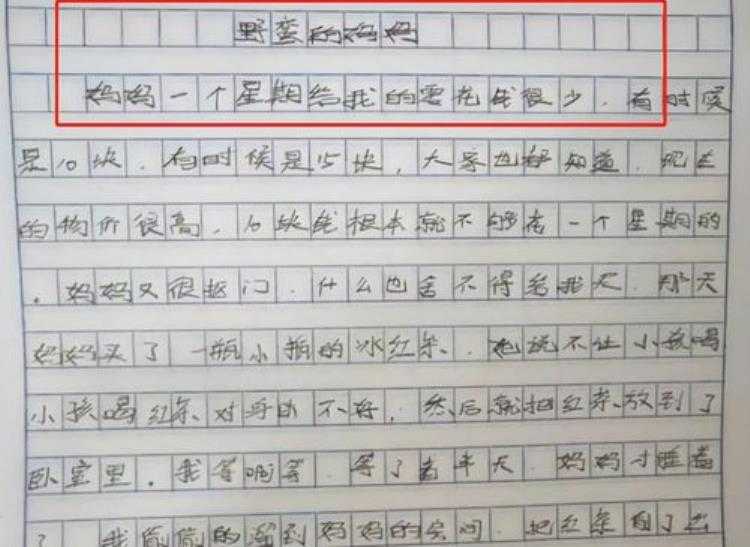 野蛮的妈妈
妈妈一个星期给我的零花钱很少，有时候
是10块，有时候是15块，大家也都知道，现在
的物价很高，10块钱根本就不够花一个星期的
。妈妈又很抠门，什么也舍不得给我买，那天
妈妈买了一瓶小瓶的冰红茶，她说不让小孩喝
小孩喝红茶对身体不好，然后就把红茶放到了
卧室里。我等啊等，等了老半天，妈妈才睡着
了，我偷偷的溜到妈妈的房间，把红茶